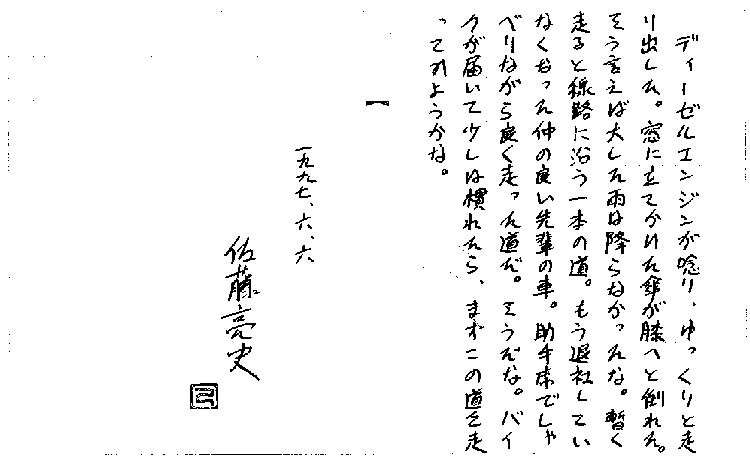 ディーゼルエンジンが唸り、ゆっくりと走
り出した。窓に立てかけた傘が膝へと倒れた。
そう言えば大した雨は降らなかったな。暫く
走ると線路に沿う一本の道。もう退社してい
なくなった仲の良い先輩の車。助手席でしゃ
べりながら良く走った道だ。そうだな。バイ
クが届いて少しは慣れたら、まずこの道を走
ってみようかな。
一九九七、六、六
佐藤亮史